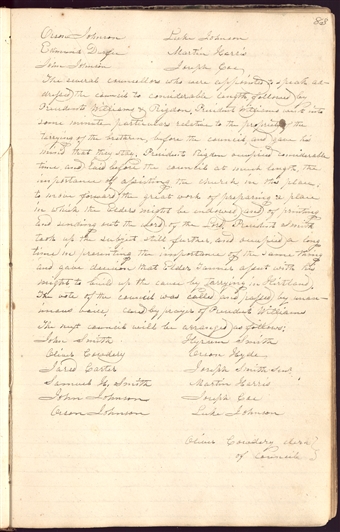 83
Orson Johnson Luke Johnson
Edmund Martin Harris
John Johnson Joseph Coe
The several councellors who were appointed to speak ad-
dressed the council to considerable length, followed by
Presidents Williams & Rigdon, President Williams went into
some minute particulars relative to the propriety of the
tarrying of the brethren, before the council, and gave his
mind that they stay, President Rigdon occupied considerable
time and laid before the council at much length, the
importance of assisting the church in this place,
to move forward the great work of preparing a place
in which the Elders might be endowed, and of printing
and sending out the word of the Lord, President Smith
took up the subject still further, and occupied a long
time in presenting the importance of the same thing
and gave decision that Elder Tanner assist with his
might to build up the cause by tarrying in Kirtland.
The vote of the council was called and passed by unan-
imous voice, closed by prayer of President Williams
The next council will be arranged as follows:
John Smith Hyrum Smith
Oliver Cowdery Orson Hyde
Jared Carter Joseph Smith Senr
Samuel H. Smith Martin Harris
John Johnson Joseph Coe
Orson Johnson Luke Johnson
Oliver Cowdery Clerk
of Council